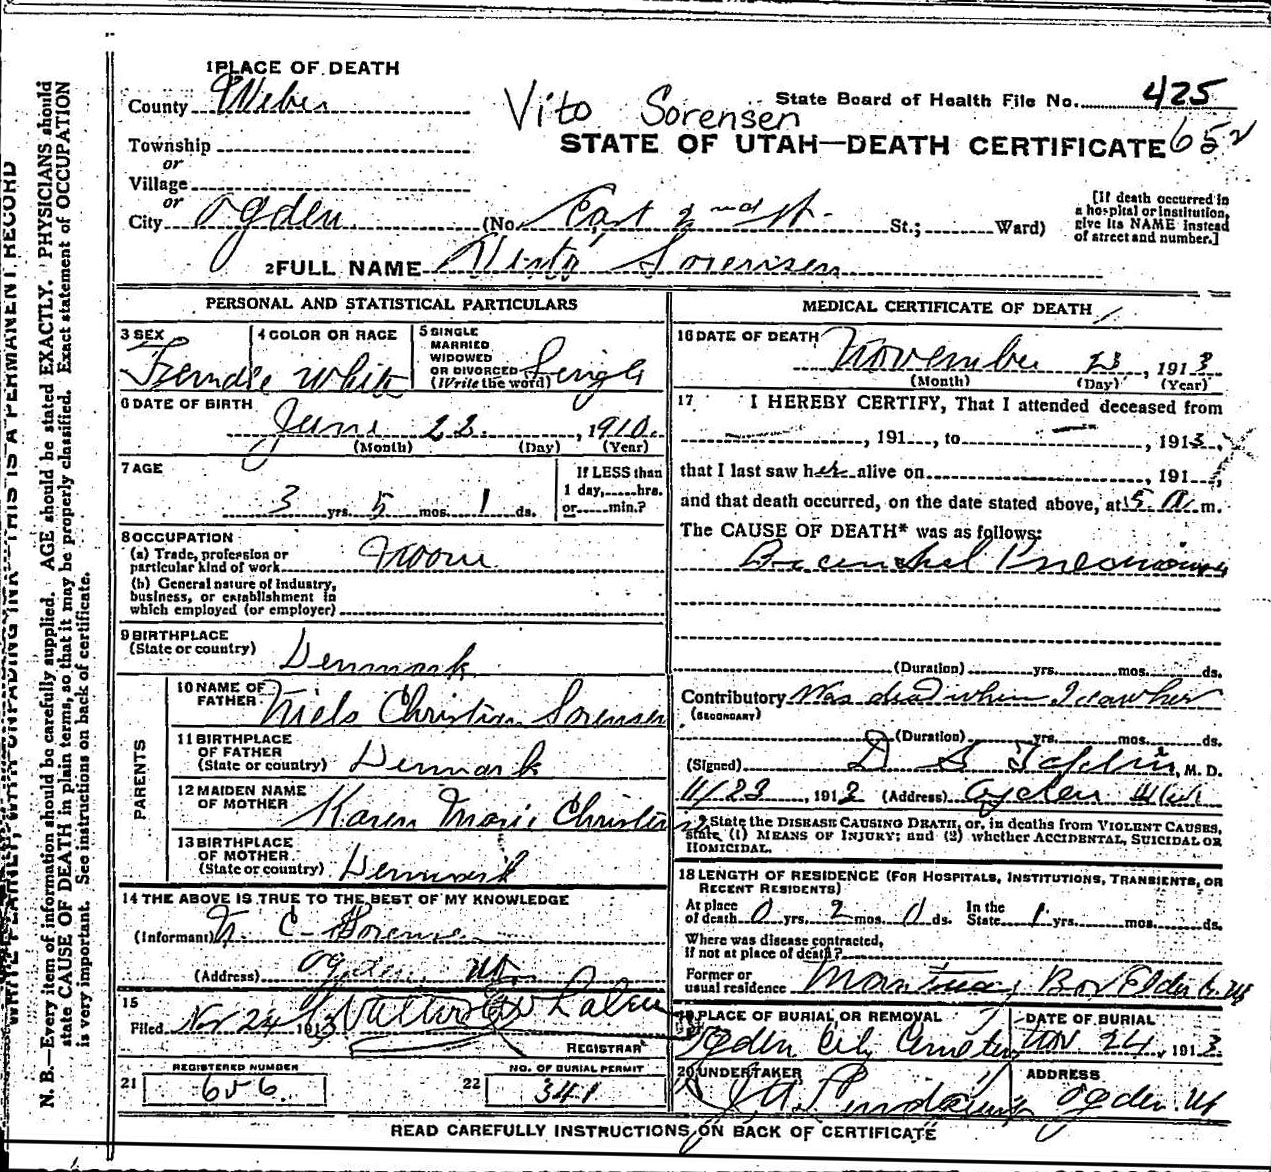 1 PLACE OF DEATH
County Weber
Vito Sorensen
State Board of Health File No. 425
STATE OF UTAH—DEATH CERTIFICATE 652
Township
or
Village
or
City Ogden (No. East 2nd St. St.; Ward)
[If death occurred in
a hospital or institution,
give its NAME instead
of street and number.]
2 FULL NAME Sorensen
PERSONAL AND STATISTICAL PARTICULARS
3 SEX
Female
4 COLOR OR RACE
White
5 SINGLE
MARRIED
WIDOWED
OR DIVORCED
(Write the word) Single
6 DATE OF BIRTH
June 22, 1910.
(Month) (Day) (Year)
7 AGE
3 yrs. 5 mos. 1 ds.
If LESS than
1 day,......hrs.
or......min.?
8 OCCUPATION
(a) Trade, profession or
particular kind of work
(b) General nature of industry,
business, or establishment in
which employed (or employer)
9 BIRTHPLACE
(State or country) Denmark
PARENTS
10 NAME OF
FATHER Niels Christian Sorensen
11 BIRTHPLACE
OF FATHER
(State or country) Denmark
12 MAIDEN NAME
OF MOTHER Karen Marie
13 BIRTHPLACE
OF MOTHER
(State or country) Denmark
14 THE ABOVE IS TRUE TO THE BEST OF MY KNOWLEDGE
(Informant) N. C. Sorensen
(Address) Ogden, Ut.
15
Filed Nov 24 1913
REGISTRAR
REGISTERED NUMBER
21 656.
NO. OF BURIAL PERMIT
22 341
MEDICAL CERTIFICATE OF DEATH
16 DATE OF DEATH
November 23, 1913
(Month) (Day) (Year)
17 I HEREBY CERTIFY, That I attended deceased from
, 191..., to , 1913,
that I last saw her alive on , 191...,
and that death occurred, on the date stated above, at 5 a. m.
The CAUSE OF DEATH* was as follows:
Bronchial Pneumonia
(Duration) yrs. mos. ds.
Contributory Was dead when I saw her
(SECONDARY)
(Duration) yrs. mos. ds.
(Signed) D S , M. D.
11/23, 1913 (Address) Ogden Utah
*State the DISEASE CAUSING DEATH, or, in deaths from VIOLENT CAUSES,
state (1) MEANS OF INJURY; and (2) whether ACCIDENTAL, SUICIDAL OR
HOMICIDAL.
18 LENGTH OF RESIDENCE (FOR HOSPITALS, INSTITUTIONS, TRANSIENTS, OR
RECENT RESIDENTS)
At place
of death 0 yrs. 2 mos. 0 ds. In the
State 1 yrs. mos. ds.
Where was disease contracted,
if not at place of death?
Former or
usual residence Mantua, Box Elder Co. Ut
19 PLACE OF BURIAL OR REMOVAL
Ogden City Cemetery
DATE OF BURIAL
NOV. 24, 1913
20 UNDERTAKER
ADDRESS
Ogden. Ut
READ CAREFULLY INSTRUCTIONS ON BACK OF CERTIFICATE
WRITE PLAINLY, WITH UNFADING INK—THIS IS A PERMANENT RECORD
N. B.—Every item of information should be carefully supplied. AGE should be stated EXACTLY. PHYSICIANS should
state CAUSE OF DEATH in plain terms, so that it may be properly classified. Exact statement of OCCUPATION
is very important. See instructions on back of certificate.